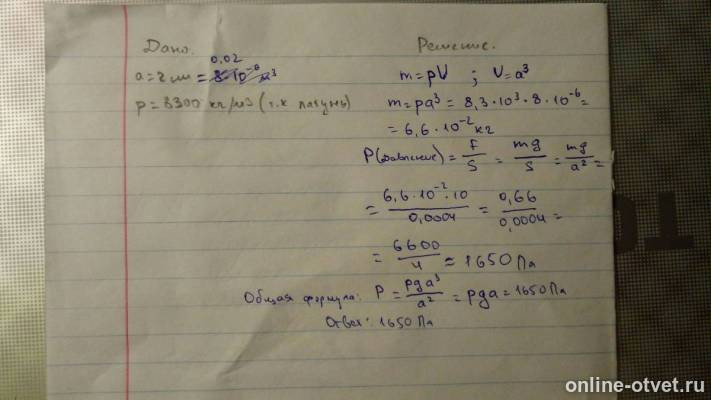 Дано.
0,02
a = 2 см = 8·10⁻⁶ м³
ρ = 8300 кг/м3 (т.к латунь)
Решение.
m = ρV ; V = a³
m = ρa³ = 8,3·10³·8·10⁻⁶ =
= 6,6·10⁻² кг
P(давление) = F/S = mg/S = mg/a² =
= 6,6·10⁻²·10/0,0004 = 0,66/0,0004 =
= 6600/4 = 1650 Па
Общая формула: P = ρga³/a² = ρga = 1650 Па
Ответ: 1650 Па
online-otvet.ru